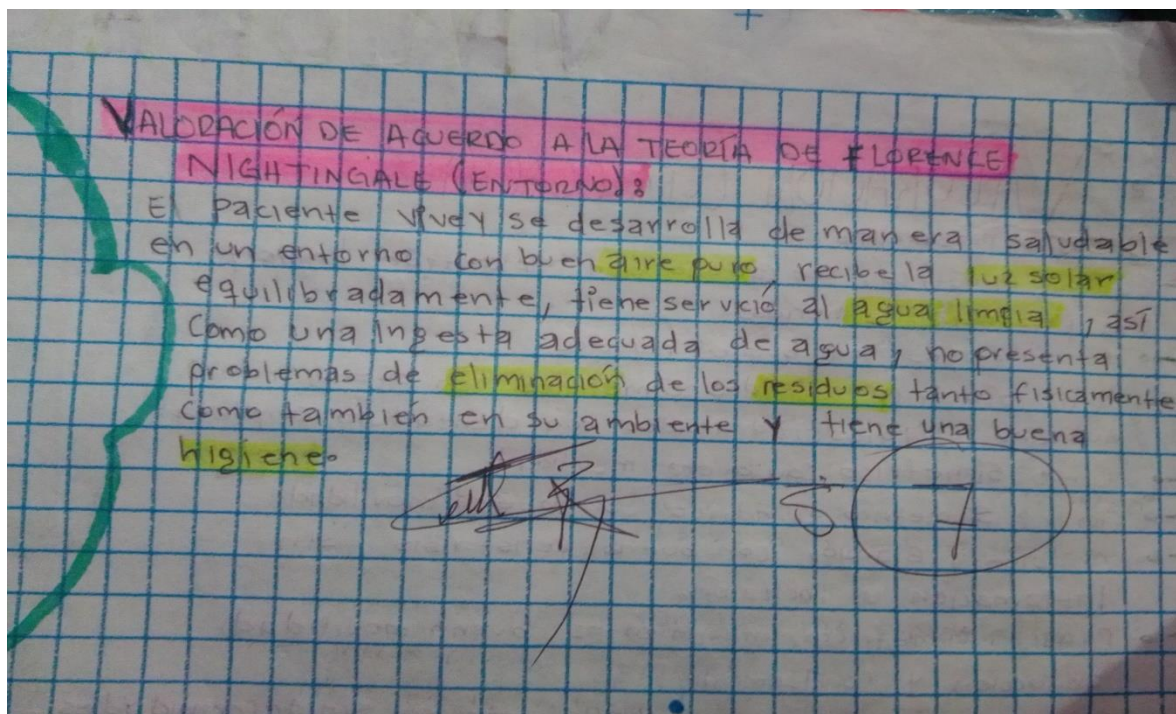 VALORACIÓN DE ACUERDO A LA TEORÍA DE FLORENCE
NIGHTINGALE (ENTORNO):
El paciente vive y se desarrolla de manera saludable
en un entorno con buen aire puro, recibe la luz solar
equilibradamente, tiene servició al agua limpia, así
Como una ingesta adequada de agua, no presenta
problemas de eliminación de los residuos tanto fisicamente
Como también en su ambiente y tiene una buena
higiene.
7